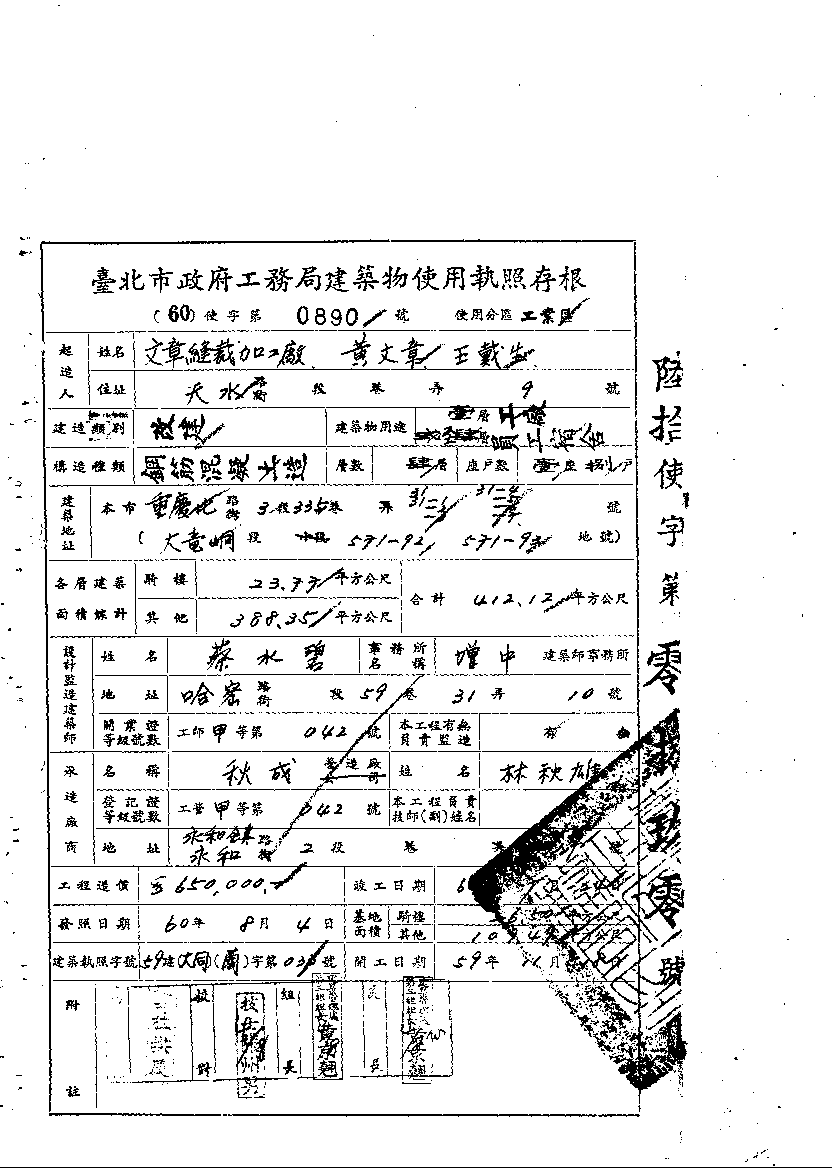 臺北市政府工務局建築物使用執照存根
(60)使字第 0890 號 使用分區 工業區
起造人 姓名 文章縫裁加工廠 黃文章 王戴生
住址 天水路街 段 巷 弄 9 號
建造類別 改建 建築物用途 壹層工廠
員工宿舍
構造種類 鋼筋混凝土造 層數 肆層 座戶數 壹座捌戶
建築地址 本市 重慶北路街 3段335巷 弄 號
(大竜峒段 小段 571-92 571-93 地號)
各層建築面積煉計 騎樓 23.77平方公尺 合計 412.12平方公尺
其他 388.35平方公尺
設計監造建築師 姓名 蔡水碧 事務所名稱 增中 建築師事務所
地址 哈密路街 段59巷31弄10號
開業證等級號數 工師甲等第042號 本工程有無負責監造 有
承造廠商 名稱 秋成 營造廠公司 姓名 林秋雄
登記證等級號數 工營甲等第042號 本工程負責技師(副)姓名
地址 永和鎮永和路街 2段 巷 號
工程造價 650,000 竣工日期
發照日期 60年8月4日 基地面積 騎樓 平方公尺
其他
建築執照字號 59建(大同)(蘭)字第 號 開工日期 59年11月 日
附註 校對 組長
陸拾使字第零捌玖零號